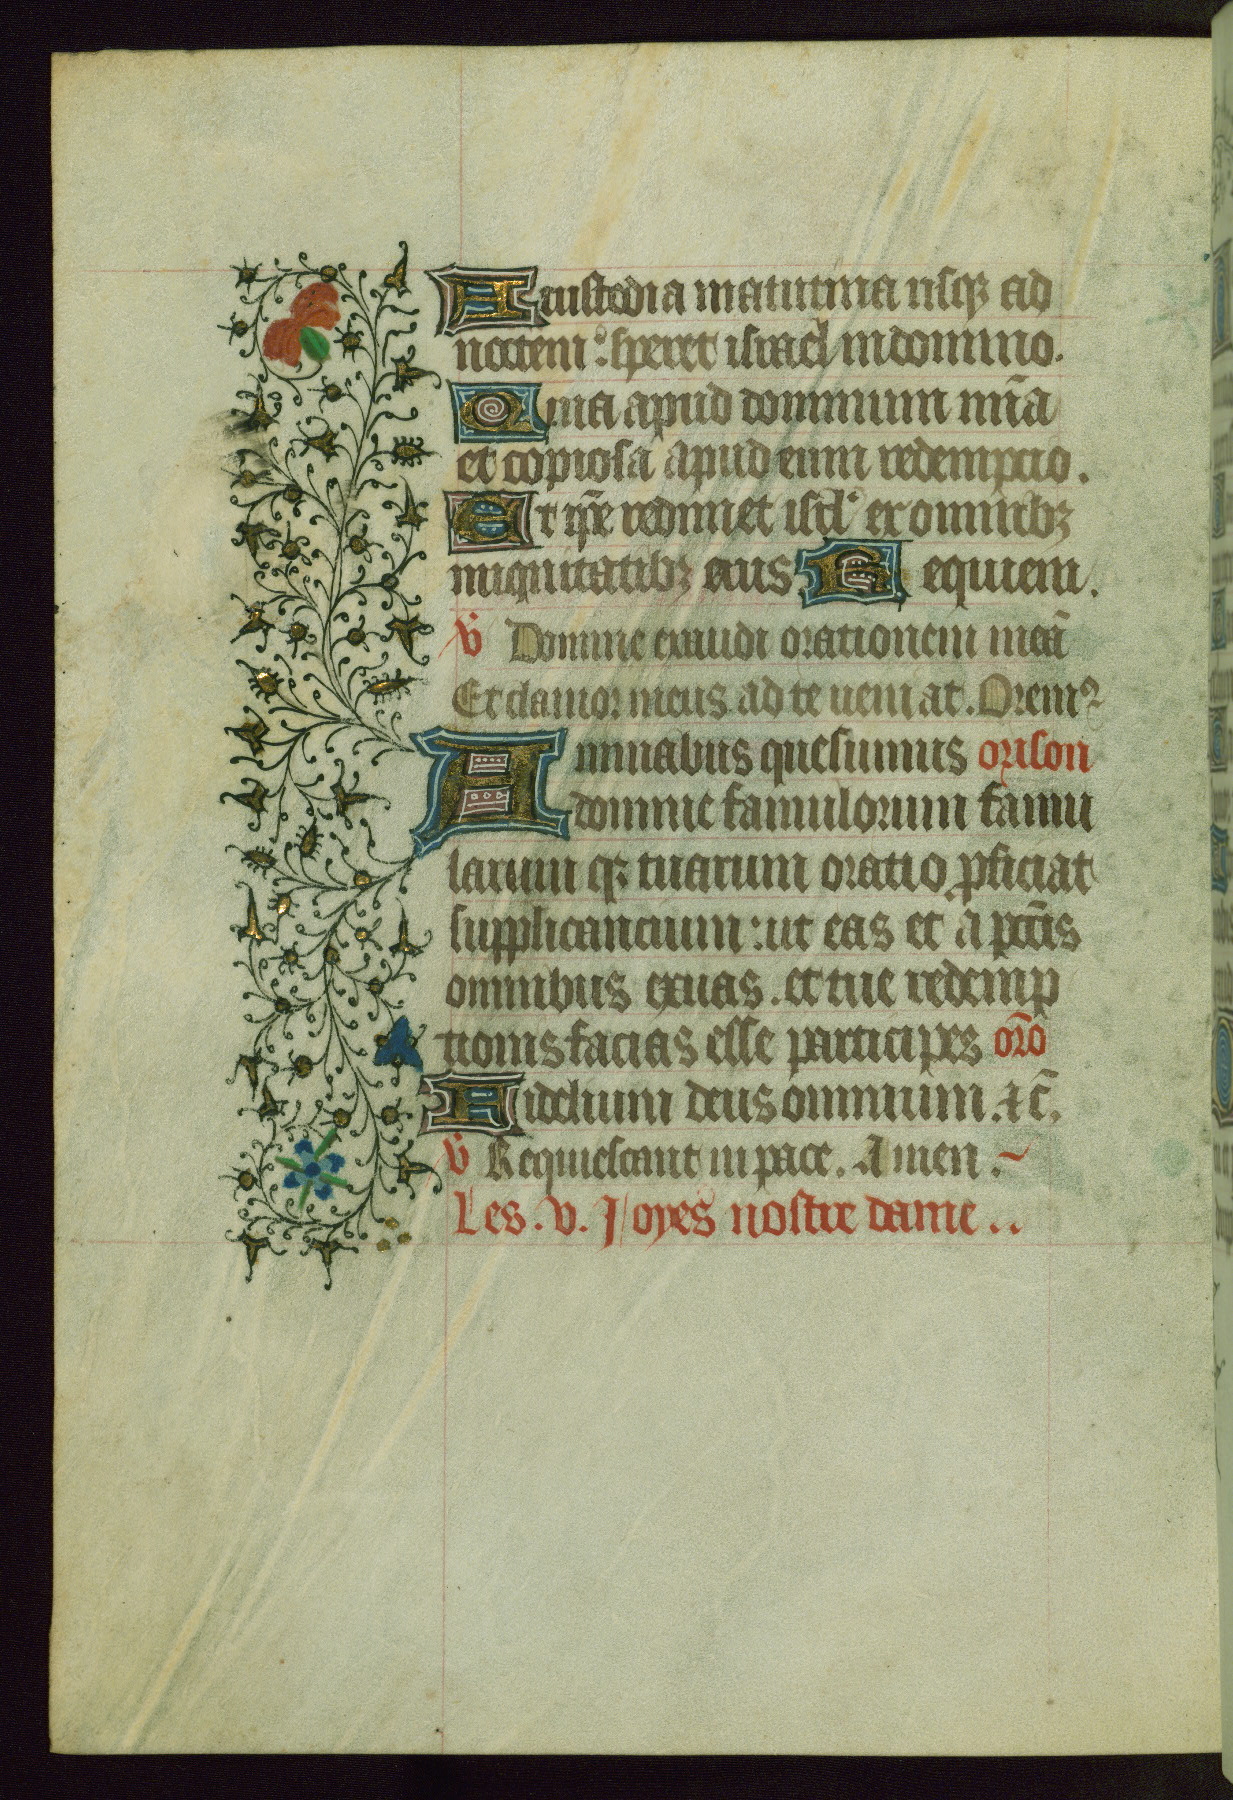 A custodia matutina usqꝫ ad
noctem : speret israel in domino.
Quia apud dominum mīa
et copiosa apud eum redempcio.
Et ip̄e redimet isrl̓ ex omnibꝫ
iniquitatibꝫ eius Requiem.
v̄ Domine exaudi orationem meā
Et clamor meus ad te ueniat. Oremꝰ
Animabus quesumus orison
domine famulorum famu
larum qꝫ tuarum oratio ꝓficiat
supplicancium : ut eas et a pctīs
omnibus exuas. et tue redemp
tionis facias esse participes orō
Fidelium deus omnium. ⁊ c̄.
v̄ Requiescant in pace. Amen.
Les .v. Joyes nostre dame..